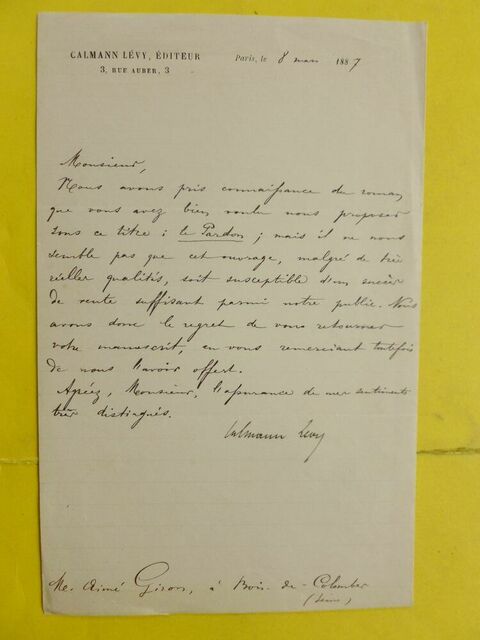 CALMANN LÉVY, ÉDITEUR
3, RUE AUBER, 3
Paris, le 8 mars 1887
Monsieur,
Nous avons pris connaissance du roman
que vous avez bien voulu nous proposer
sous ce titre : le Pardon ; mais il ne nous
semble pas que cet ouvrage, malgré de très
réelles qualités, soit susceptible d'un succès
de vente suffisant parmi notre public. Nous
avons donc le regret de vous retourner
votre manuscrit, en vous remerciant toutefois
de nous l'avoir offert.
Agréez, Monsieur, l'assurance de mes sentiments
très distingués.
Calmann Lévy
M. Aimé Giron, à Bois-de-Colombes
(Seine)